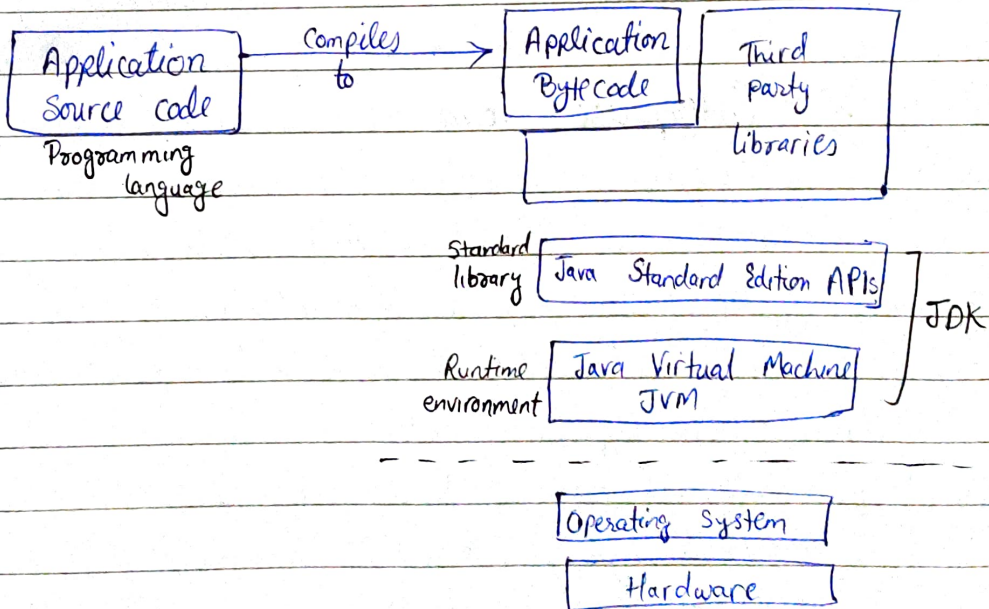 Application
Source code
Programming
language
Compiles
to
Application
Bytecode
Third
party
libraries
Standard
library
Java Standard Edition APIs
JDK
Runtime
environment
Java Virtual Machine
JVM
Operating System
Hardware